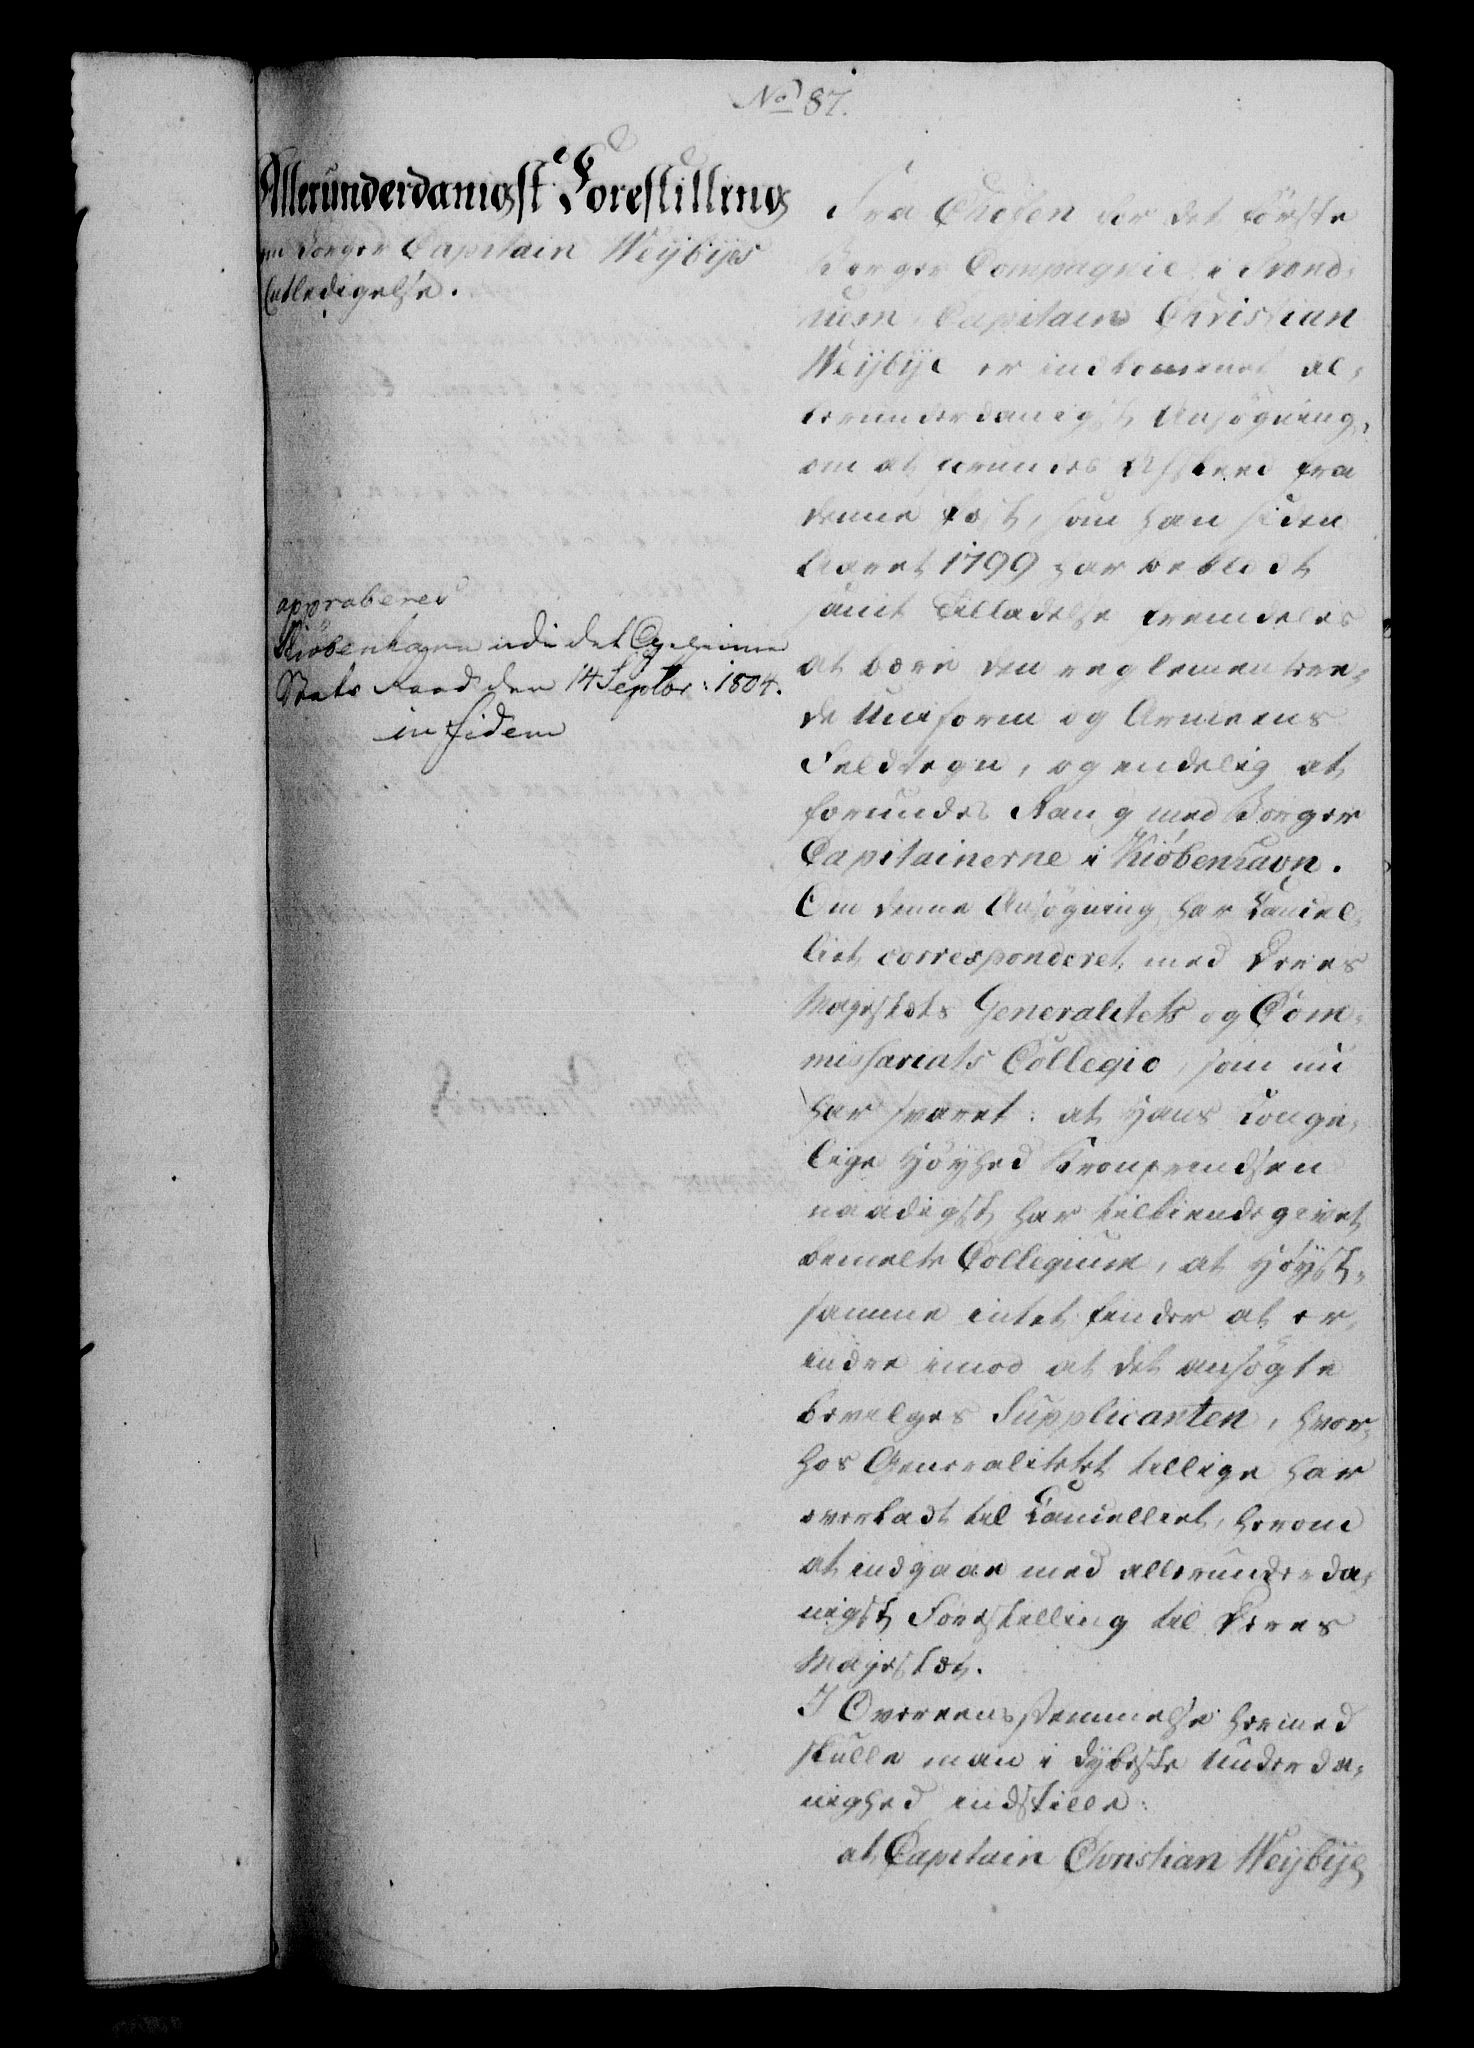 No 87.
Allerunderdanigst Forestilling
om Borger Capitain Weybyes
Entledigelse.
approberes
Kiöbenhavn udi det Geheime
Stats Raad den 14 Septbr: 1804.
in fidem
Fra Chefen for det förste
Borger Compagnie i Trond-
hiem, Capitain Christian
Weybye er indkommet al-
lerunderdanigst Ansögning,
om at forundes Afskeed fra
denne Post, som han siden
Aaret 1799 har beklædt
samt Tilladelse fremdeles
at bære den reglementere-
de Uniform og Armeens
Feldtegn, og endelig at
forundes Rang med Borger
Capitainerne i Kiöbenhavn.
Om denne Ansögning har Cancel-
liet corresponderet med Deres
Majestæts Generalitets og Com-
missariats Collegio, som nu
har svaret: at Hans Konge-
lige Höyhed Kronprindsen
naadigst har tilkiendegivet
bemelte Collegium, at Höyst-
samme intet finder at er-
indre imod at det ansögte
bevilges Supplicanten, hvor-
hos Generalitetet tillige har
overladt til Cancelliet, herom
at indgaae med allerunderda-
nigst Forestilling til Deres
Majestæt.
I Overeensstemmelse hermed
skulle man i dybeste Underda-
nighed indstille:
at Capitain Christian Weybye